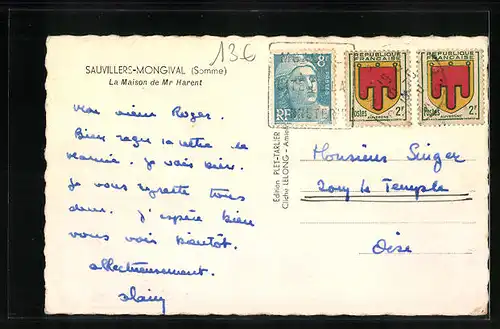 136
SAUVILLERS-MONGIVAL (Somme)
La Maison de Mr Harent
mon vieux Roger.
Bien reçu ta lettre la
. je vais bien.
je vous regrette tous
deux. j'espère bien
vous voir bientôt.
affectueusement.
alain
Edition PLET-TARLIER
Cliché LELONG - Amiens
8F
POSTES
RF
REPUBLIQUE FRANÇAISE
Postes 2F
AUVERGNE
REPUBLIQUE FRANÇAISE
Postes 2F
AUVERGNE
Monsieur Singer
le Temple
Oise